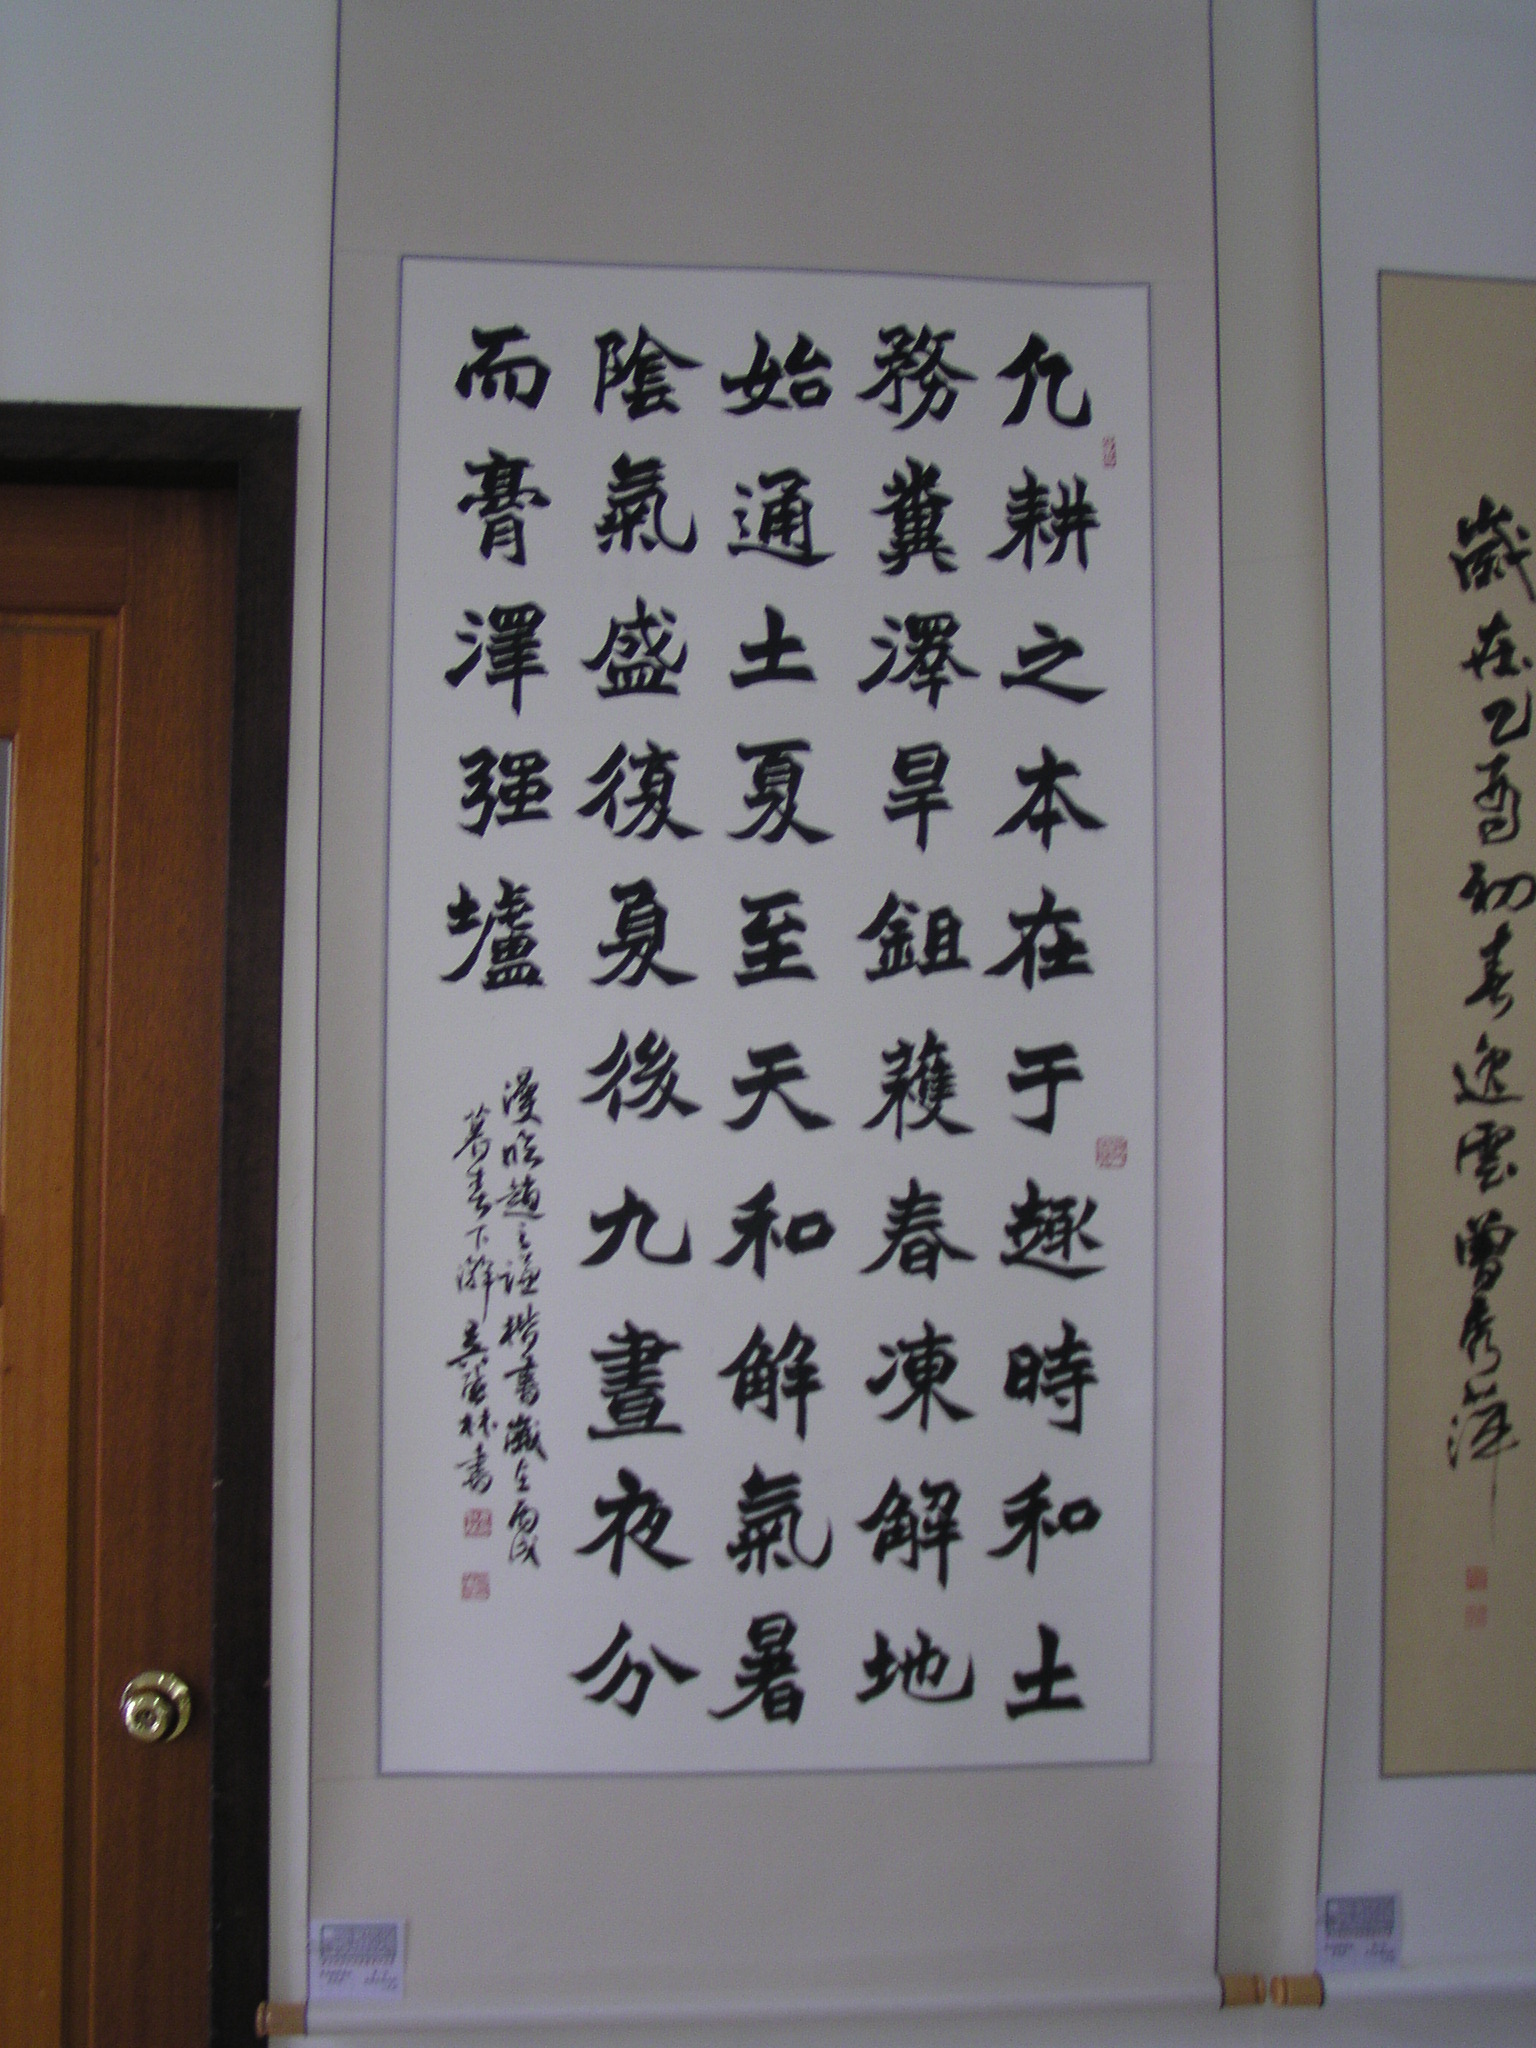 凢耕之本在于趣時和土
務糞澤旱鉏蘿春凍解地
始通土夏至天和解氣暑
陰氣盛復夏後九晝夜分
而膏澤强壚
漫臨趙之謙楷書歲在丙戌
暮春下澣
歲在乙酉初春逸雲曾秀萍